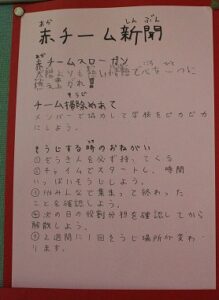 赤チーム新聞
赤チームスローガン
太陽よりも 情熱で心を一つに
燃え
チーム掃除めあて
メンバーで協力して学校をピカピカ
にしよう。
そうじする時のおねがい
①ぞうきんを必ず持ってくる
②チャイムでスタートし、時間
いっぱいそうじしよう。
③みんなで集まって終わった
ことを確認しよう。
④次の日の役割分担を確認してから
解散しよう。
⑤2週間に1回そうじ場所が変わ
ります。